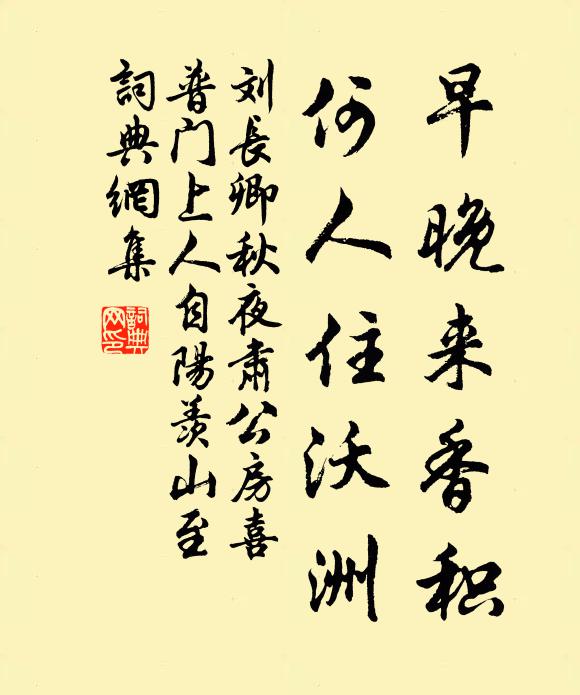 早晚来香积
何人住沃洲
刘長卿秋夜肃公房喜
普门上人自陽羡山至
詞典網集
詞典网印